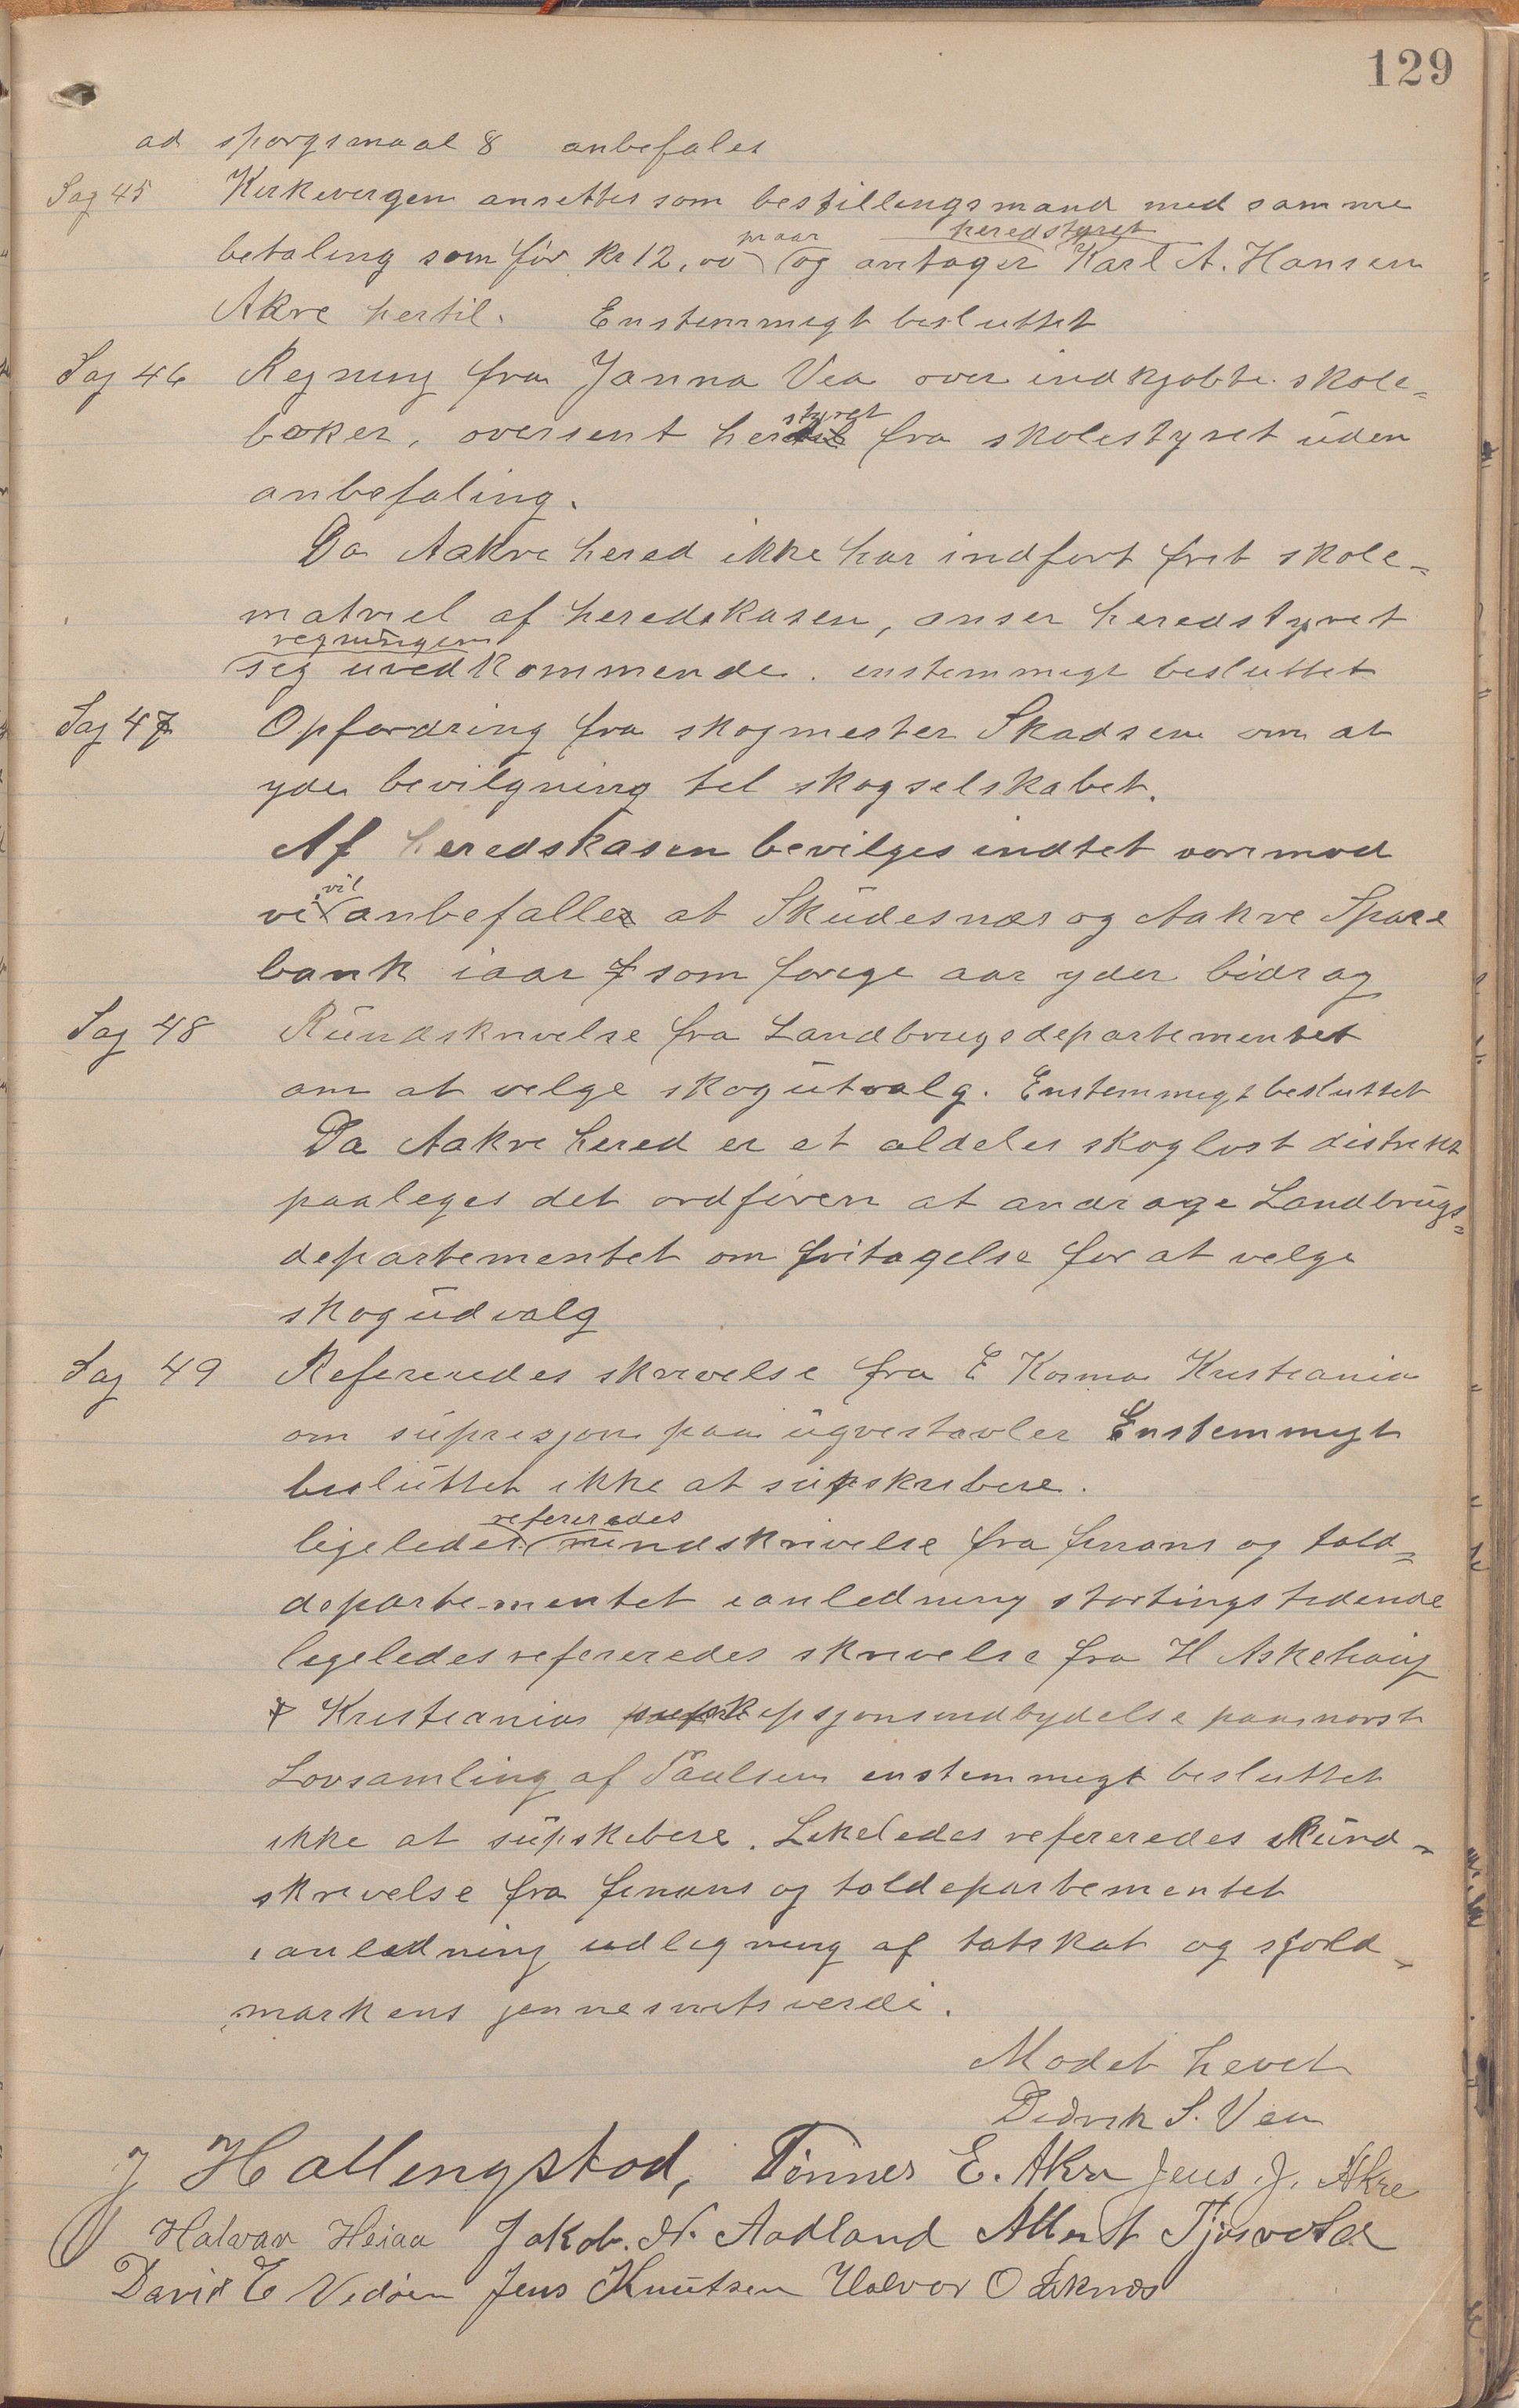 129
ad sporgsmaal 8 anbefales
Sag 45 Kirkevergen ansettes som bestillingsmand med samme
betaling som før kr 12,00 pr aar og antager heredstyret Karl A. Hansen
Akre hertil. Enstemmigt besluttet
Sag 46 Regning fra Janna Vea over indkjøbte skole-
bøker, oversent herdstyret fra skolestyret uden
anbefaling.
Da Aakre hered ikke har indført frit skole-
matriel af heredskasen, anser heredstyret
regningen seg uvedkommende. enstemmigt besluttet
Sag 47 Opfordring fra skogmester Skadsem om at
yde bevilgning til skogselskabet.
Af heredskasen bevilges indtet vormod
vi vil anbefalle at Skudesnæs og Aakre Spare
bank iaar som forige aar yder bidrag
Sag 48 Rundskrivelse fra Landbrugsdepartementet
om at velge skogutvalg. Enstemmigt besluttet
Da Aakre hered er et aldeles skogløst distrikt
paaleges det ordføren at andrage Landbrugs-
departementet om fritagelse for at velge
skogudvalg
Sag 49 Refereredes skrivelse fra E Kosmo Kristiania
om supresjon paa ugvestavler Enstemmigt
besluttet ikke at supskribere.
ligeledes refereredes rundskrivelse fra finans og told-
departementet ianledning stortingstidende
ligeledes refereredes skrivelse fra H Askehaug
& Kristiania psjonsindbydelse paa norsk
Lovsamling af Paulsen enstemmigt besluttet
ikke at supskibere. Likeledes refereredes Rund-
skrivelse fra finans og toldepartementet
ianledning udligning af tatskat og sjold-
markens jennesnitsverdi.
Modet hevet
Didrik S. Vea
J Hallingstad, Tønnes E. Akra Jens J. Akre
Halvar Heiaa Jakob N. Aadland Albert Tjøsvold
David E Vedøen Jens Knutsen Halvor O Liknes